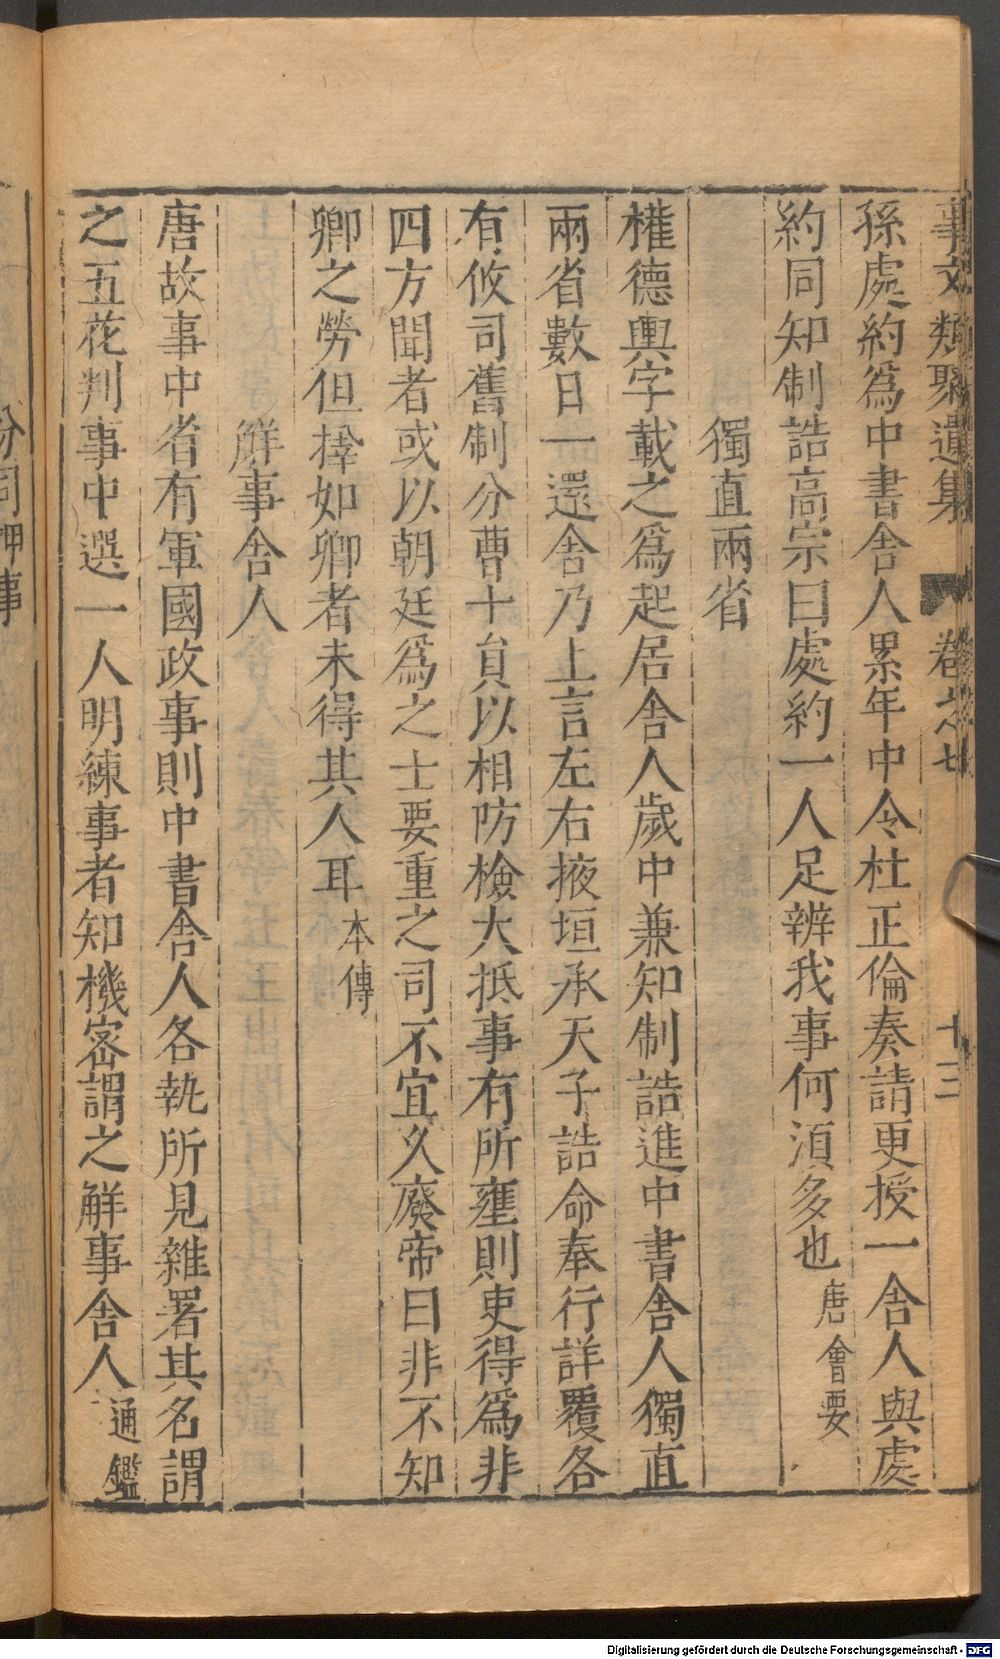 事文類聚遺集 卷之七 十三
孫處約爲中書舍人累年中令杜正倫奏請更授一舍人與處
約同知制誥高宗曰處約一人足辨我事何湏多也 唐會要
獨直兩省
權德輿字載之爲起居舍人歲中兼知制誥進中書舍人獨直
兩省數日一還舍乃上言左右掖垣承天子誥命奉行詳覆各
有攸司舊制分曹十負以相防檢大抵事有所壅則吏得爲非
四方聞者或以朝廷爲之士要重之司不宜久廢帝曰非不知
卿之勞但擇如卿者未得其人耳 本傳
觧事舍人
唐故事中省有軍國政事則中書舍人各執所見雜署其名謂
之五花判事中選一人明練事者知機密謂之觧事舍人 通鑑
分司押事
Digitalisierung gefördert durch die Deutsche Forschungsgemeinschaft - DFG